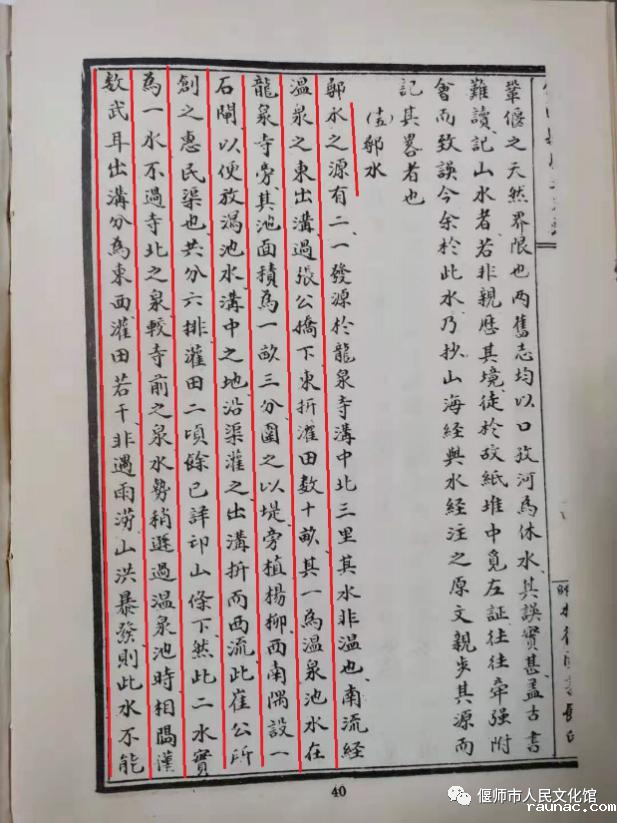 鞏偃之天然界限也两舊志均以口孜河為休水其誤實甚盖古書
難讀記山水者若非親歷其境徒於故紙堆中覓左証往往牽强附
會而致誤今余於此水乃抄山海經與水經注之原文親步其源而
記其畧者也
鄩水
鄩水之源有二一發源於龍泉寺溝中北三里其水非温也南流經
温泉之東出溝過張公橋下東折灌田数十畝其一為温泉池水在
龍泉寺旁其池面積為一畝三分圍之以堤旁植楊柳西南隅設一
石閘以便放濄池水溝中之地沿渠灌之出溝折而西流此崔公所
創之惠民渠也共分六排灌田二頃餘已詳邙山條下然此二水實
為一水不過寺北之泉較寺前之泉水勢稍遜過温泉池時相隔僅
数武耳出溝分為東西灌田若干非遇雨澇山洪暴發則此水不能
40
偃师市人民文化馆
raunac.com